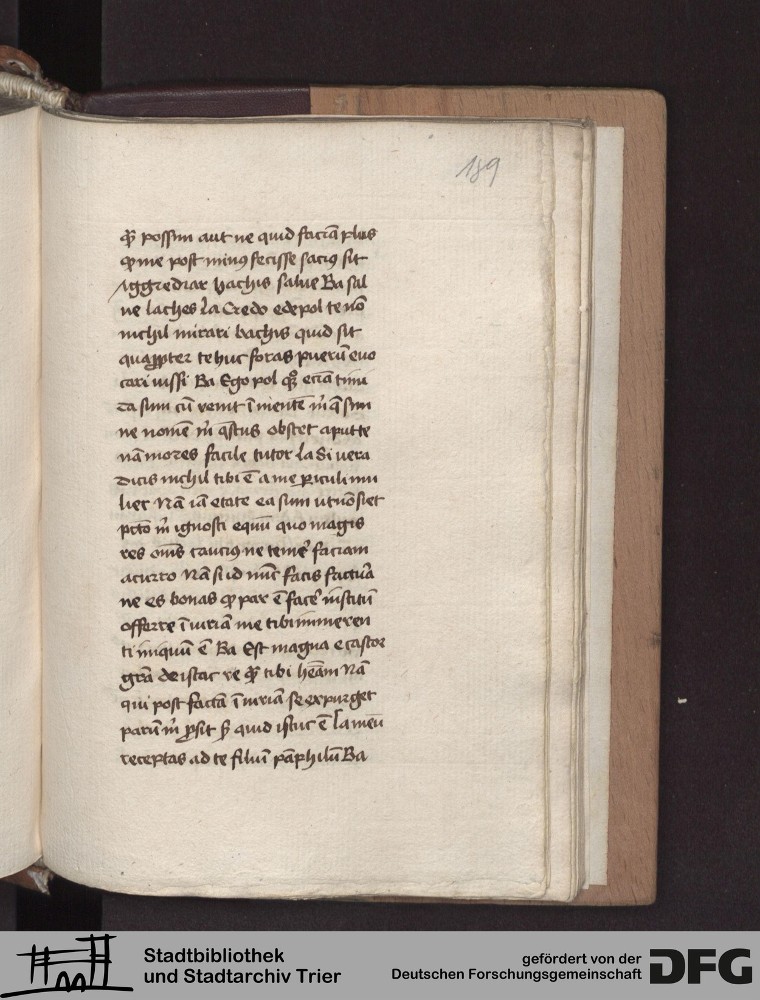 189
qꝫ possim aut ne quid faciā plus
qͦ me post minꝰ fecisse saciꝰ sit
Aggrediar bachis salue Ba sal
ue laches la Credo edepol te nō
nichil mirari bachis quid sit
quapropter te huc foras puerū euo
cari iussi Ba Ego pol qꝫ eciā timi
da sum cū venit ī mentē m̄ q̄ sim
ne nomē m̄ q̄stus obstet aput te
nā mores facile tutor la Si vera
dicis nichil tibi ē a me periculi mu
lier Nā iā etate ea sum ut nō siet
pctō m̄ ignosci equū quo magis
res om̄s cauciꝰ ne temeˀ faciam
acurro Nā si id nūc facis factūa
ne es bonas qͦ par ē faceˀ inscitū
offerre ī iuriā me tibi immeren
ti iniquū ē Ba Est magna ecastor
grā de istac re qꝫ tibi heām Nā
qui post factā ī iuriā se expurget
parū m̄ prosit sꝫ quid istuc ē La meū
receptas ad te filiū pāphilū Ba
Stadtbibliothek
und Stadtarchiv Trier
gefördert von der
Deutschen Forschungsgemeinschaft
DFG